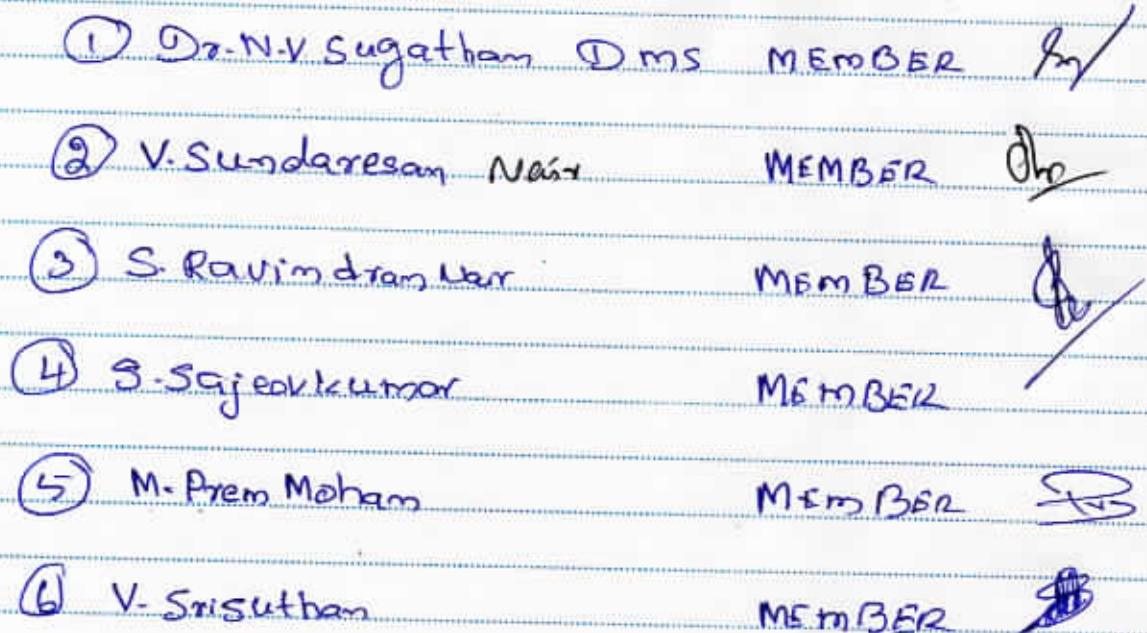 ① Dr. N.V Sugathan Dms MEMBER
② V. Sundaresan Nair MEMBER
③ S. Ravindran Nair MEMBER
④ S. Sajeevkumar MEMBER
⑤ M. Prem Mohan MEMBER
⑥ V. Srisuthan MEMBER